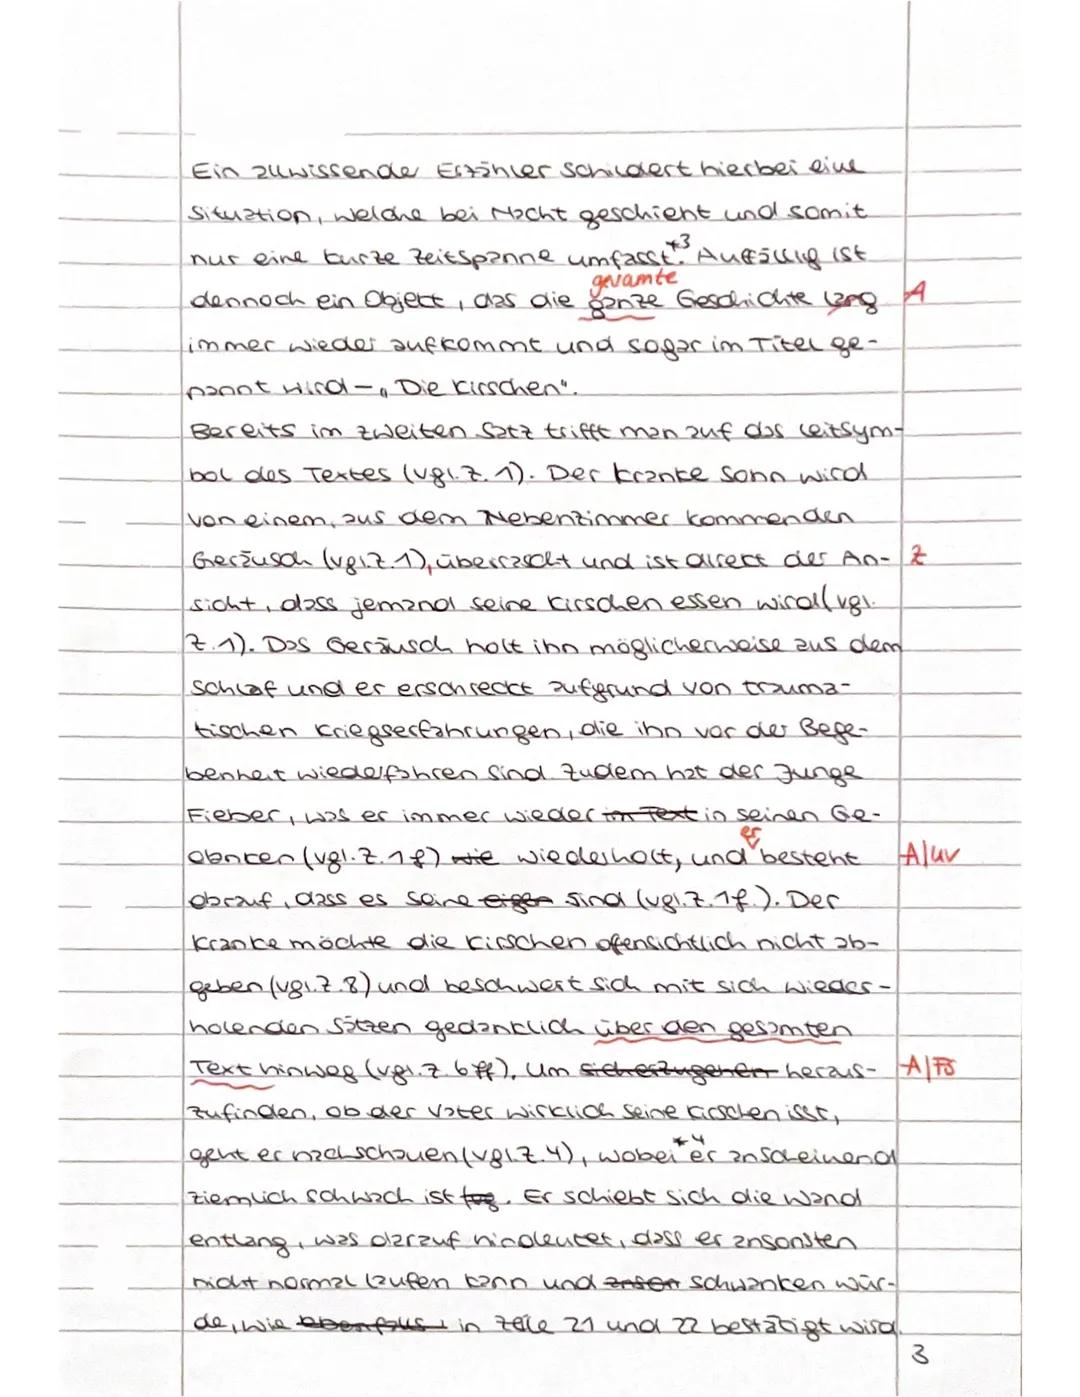 Ein zuwissender Erzähler schildert hierbei eine
Situation, welche bei Nacht geschieht und somit
nur eine kurze Zeitspanne umfasst.*3 Auffällig ist
gesamte
dennoch ein Objekt, das die ganze Geschichte lang A
immer wieder aufkommt und sogar im Titel ge-
nannt wird - „Die Kirschen".
Bereits im zweiten Satz trifft man auf das Leitsym-
bol des Textes (vgl. Z. 1). Der kranke Sohn wird
von einem, aus dem Nebenzimmer kommenden
Geräusch (vgl. Z. 1), überrascht und ist direkt der An- Z
sicht, dass jemand seine Kirschen essen wird (vgl.
Z. 1). Das Geräusch holt ihn möglicherweise aus dem
Schlaf und er erschreckt aufgrund von trauma-
tischen Kriegserfahrungen, die ihn vor der Bege-
benheit wiederfahren sind. Zudem hat der Junge
Fieber, was er immer wieder im Text in seinen Ge-
er
danken (vgl. Z. 1f) wie wiederholt, und besteht A/uv
darauf, dass es seine eigen sind (vgl. Z. 1f.). Der
Kranke möchte die Kirschen ofensichtlich nicht ab-
geben (vgl. Z. 8) und beschwert sich mit sich wieder-
holenden Sätzen gedanklich über den gesamten
Text hinweg (vgl. Z. 6ff). Um sicherzugehen heraus- A/FS
zufinden, ob der Vater wirklich seine Kirschen isst,
geht er nachschauen (vgl. Z. 4), wobei *4 er anscheinend
ziemlich schwach ist. Er schiebt sich die Wand
entlang, was darauf hindeutet, dass er ansonsten
nicht normal laufen kann und anson schwanken wür-
de, wie ebenfalls in Zeile 21 und 22 bestätigt wird.
3